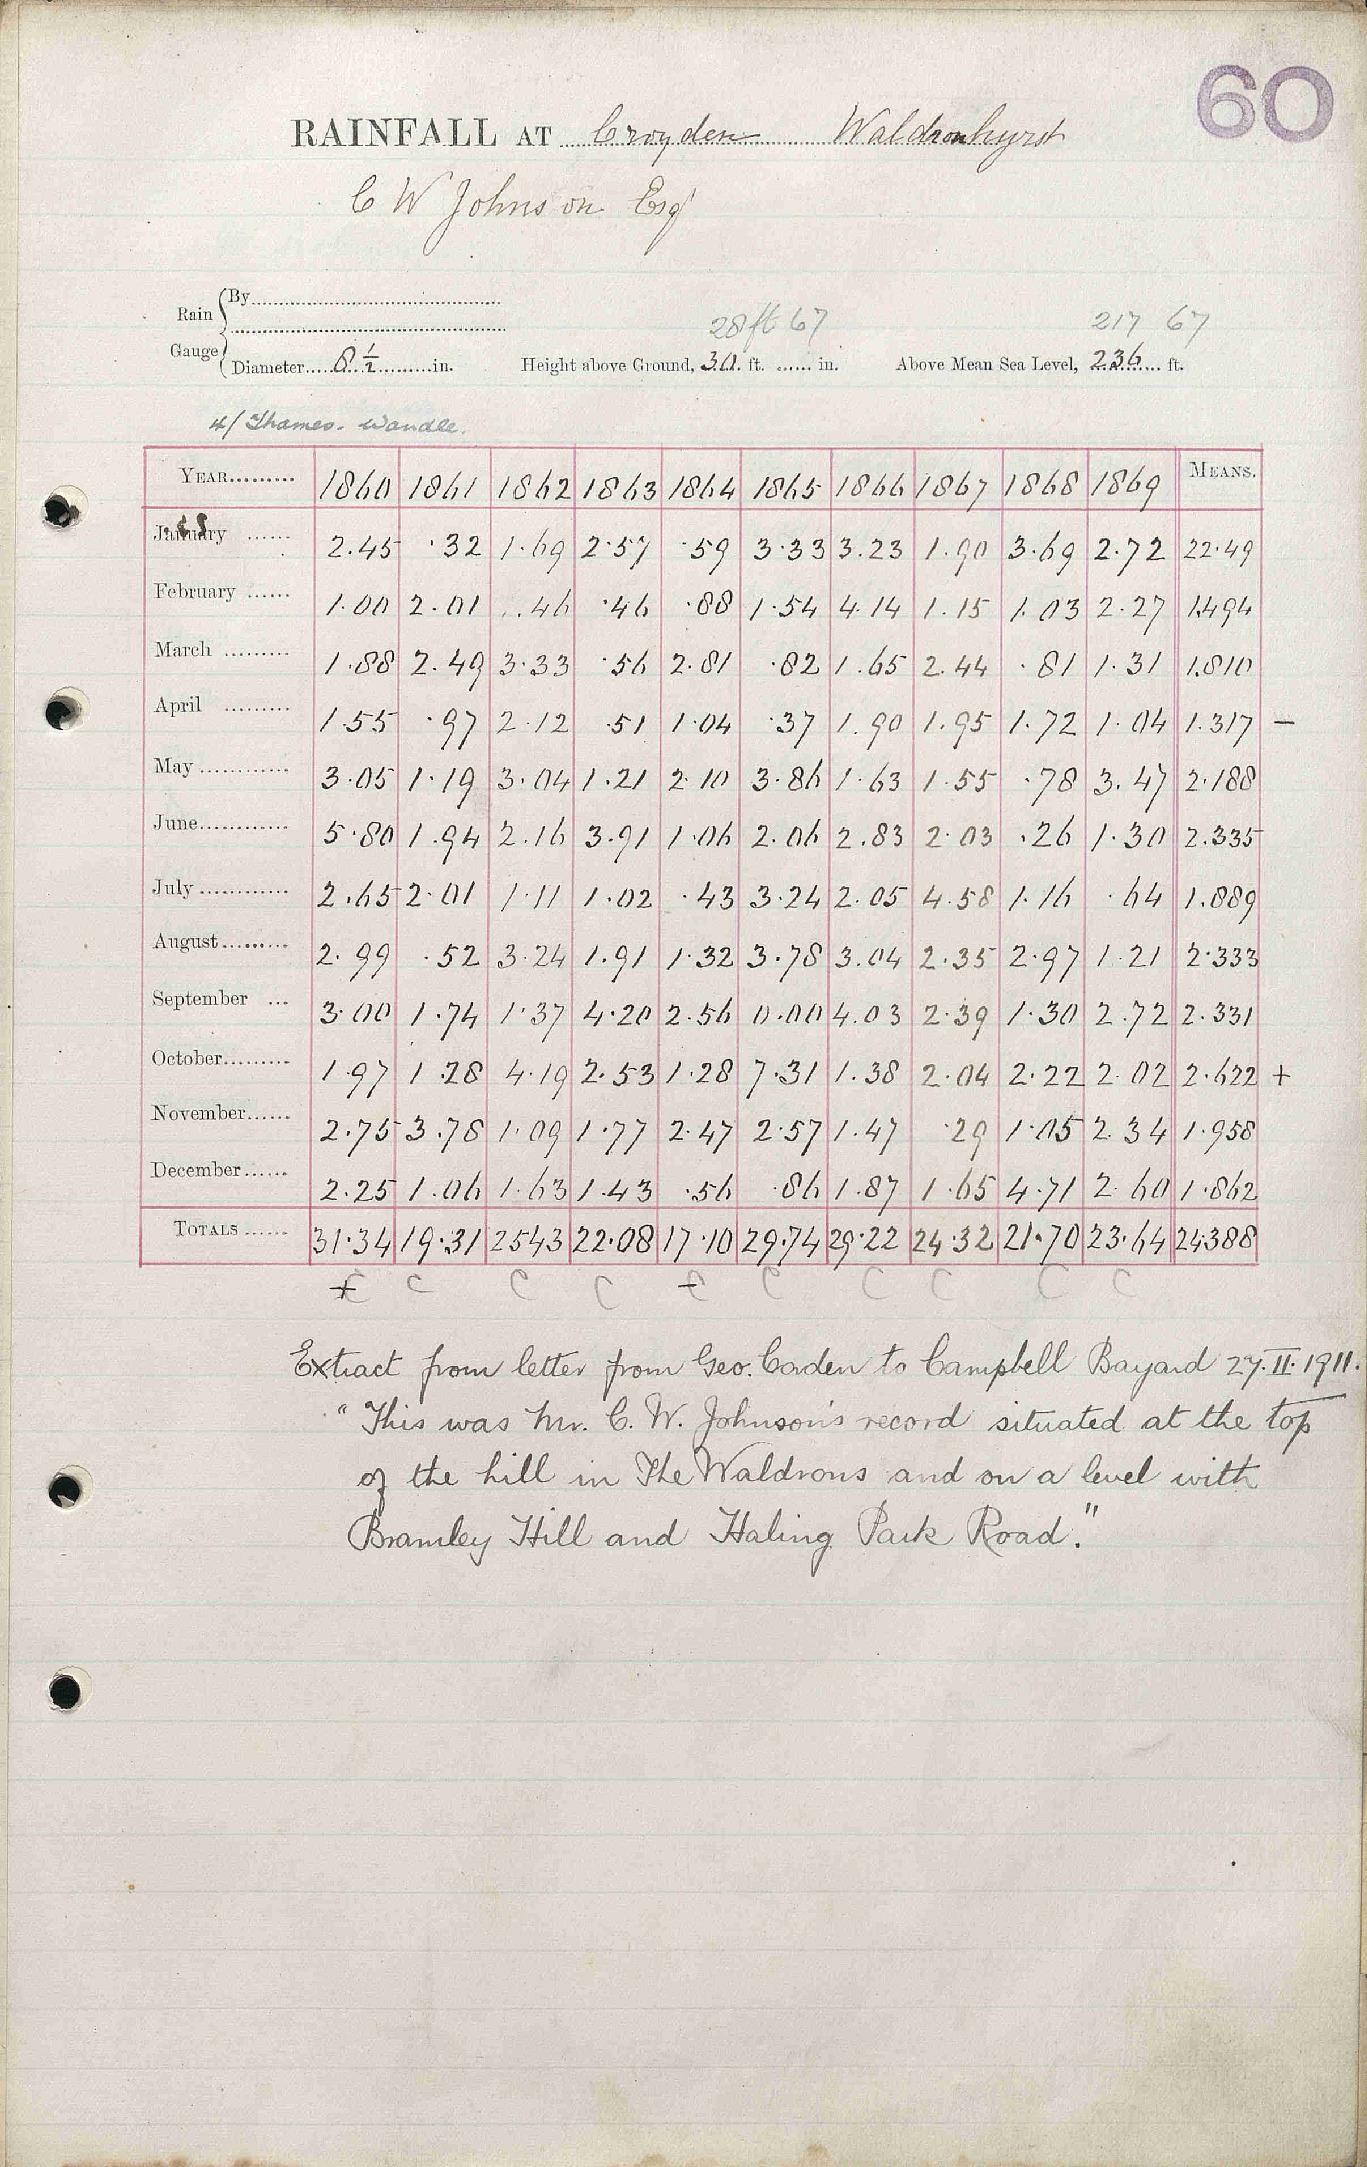 60
RAINFALL AT Croyden Waldronhyrst
C W Johnson Esq
Rain Gauge By
28 ft 67 217 67
Diameter 8 1/2 in. Height above Ground, 30 ft. in. Above Mean Sea Level, 236 ft.
4/ Thames. Wandle.
YEAR 1860 1861 1862 1863 1864 1865 1866 1867 1868 1869 MEANS.
January 2.45 .32 1.69 2.57 .59 3.33 3.23 1.90 3.69 2.72 22.49
February 1.00 2.01 .46 .46 .88 1.54 4.14 1.15 1.03 2.27 1.494
March 1.88 2.49 3.33 .56 2.81 .82 1.65 2.44 .81 1.31 1.810
April 1.55 .97 2.12 .51 1.04 .37 1.90 1.95 1.72 1.04 1.317 —
May 3.05 1.19 3.04 1.21 2.10 3.86 1.63 1.55 .78 3.47 2.188
June 5.80 1.94 2.16 3.91 1.06 2.06 2.83 2.03 .26 1.30 2.335
July 2.65 2.01 1.11 1.02 .43 3.24 2.05 4.58 1.16 .64 1.889
August 2.99 .52 3.24 1.91 1.32 3.78 3.04 2.35 2.97 1.21 2.333
September 3.00 1.74 1.37 4.20 2.56 0.00 4.03 2.39 1.30 2.72 2.331
October 1.97 1.28 4.19 2.53 1.28 7.31 1.38 2.04 2.22 2.02 2.622 +
November 2.75 3.78 1.09 1.77 2.47 2.57 1.47 .29 1.05 2.34 1.958
December 2.25 1.06 1.63 1.43 .56 .86 1.87 1.65 4.71 2.60 1.862
TOTALS 31.34 19.31 2543 22.08 17.10 29.74 29.22 24.32 21.70 23.64 24.388
+ C C C C - C C C C C C
Extract from letter from Geo. Corden to Campbell Bayard 27.II.1911.
"This was Mr. C. W. Johnson's record situated at the top
of the hill in The Waldrons and on a level with
Bramley Hill and Haling Park Road."